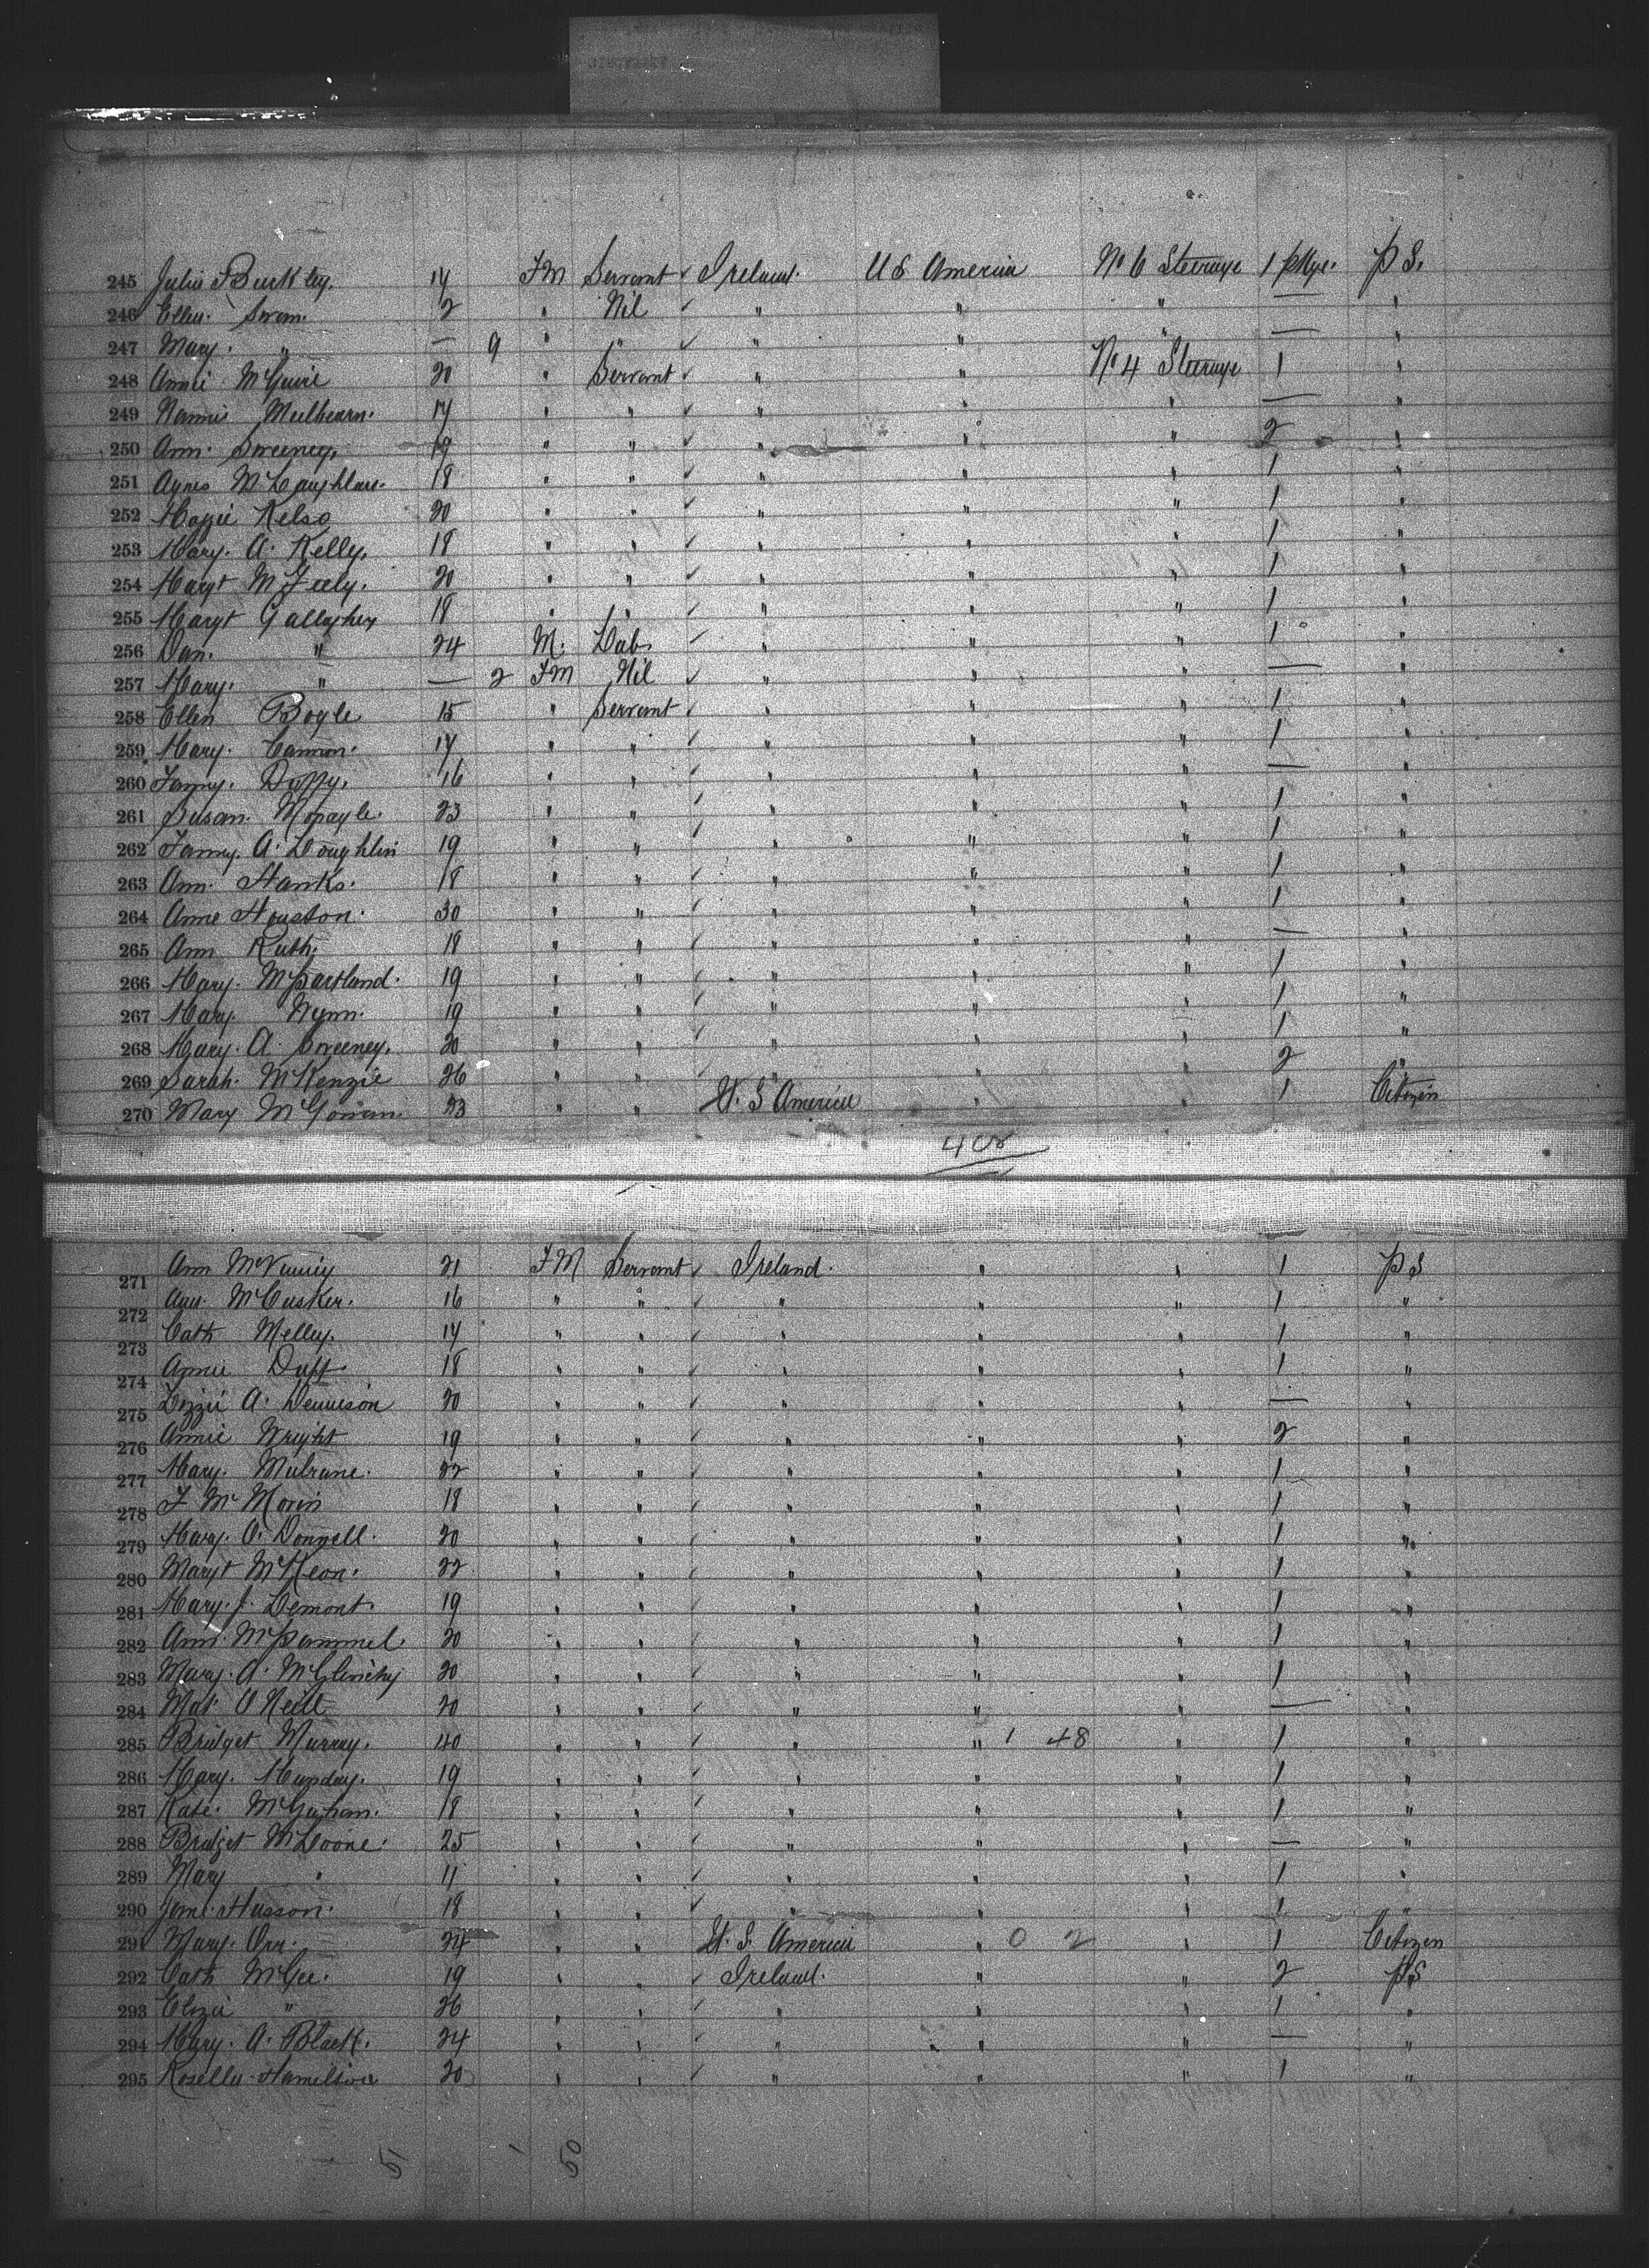 245 Julia Buckley. 17 FM Servant ✓ Ireland. U S America No 6 Steerage 1 pkge. P S.
246 Ellen. Swan. 2 " Nil ✓ " " " — "
247 Mary. " — 9 " " ✓ " " " — "
248 Annie McGuire 20 " Servant ✓ " " No 4 Steerage 1 "
249 Nannie Mulhearn. 17 " " ✓ " " " — "
250 Ann. Sweeney. 19 " " ✓ " " " 2 "
251 Agnes McLaughlan. 18 " " ✓ " " " 1 "
252 Maggie Kelso 20 " " ✓ " " " 1 "
253 Mary. A. Kelly. 18 " " ✓ " " " 1 "
254 Margt McFeely. 20 " " ✓ " " " 1 "
255 Margt Gallagher 18 " " ✓ " " " 1 "
256 Dan. " 24 M. Lab. ✓ " " " 1 "
257 Mary. " — 2 FM Nil ✓ " " " — "
258 Ellen Boyle 15 " Servant ✓ " " " 1 "
259 Mary. Cannon. 17 " " ✓ " " " 1 "
260 Fanny. Duffy. 16 " " ✓ " " " — "
261 Susan. 23 " " ✓ " " " 1 "
262 Fanny. A. Loughlin 19 " " ✓ " " " 1 "
263 Ann. Hanks. 18 " " ✓ " " " 1 "
264 Anne Houston. 30 " " ✓ " " " 1 "
265 Ann Ruth. 18 " " ✓ " " " — "
266 Mary. McPartland. 19 " " ✓ " " " 1 "
267 Mary. Wynn. 19 " " ✓ " " " 1 "
268 Mary. A. Sweeney. 20 " " ✓ " " " 1 "
269 Sarah. McKenzie 26 " " ✓ " " " 2 "
270 Mary McGowan. 23 " " U. S America " " 1 Citizen
271 Ann 21 FM Servant ✓ Ireland. " " 1 P S
272 Ann. McCusker. 16 " " ✓ " " " 1 "
273 Cath Melley. 17 " " ✓ " " " 1 "
274 Annie Duff. 18 " " ✓ " " " 1 "
275 Lizzie A. Dennison 20 " " ✓ " " " — "
276 Annie Wright 19 " " ✓ " " " 2 "
277 Mary. Mulrane. 22 " " ✓ " " " 1 "
278 F Mc Morin 18 " " ✓ " " " 1 "
279 Mary. O. Donnell. 20 " " ✓ " " " 1 "
280 Margt McKeon. 22 " " ✓ " " " 1 "
281 Mary. J. Lemont. 19 " " ✓ " " " 1 "
282 Ann. 20 " " ✓ " " " 1 "
283 Mary. A. McGlinchy 20 " " ✓ " " " 1 "
284 Mat O Neill 20 " " ✓ " " " — "
285 Bridget Murray. 40 " " ✓ " " 1 48 " 1 "
286 Mary. Munday. 19 " " ✓ " " " 1 "
287 Kate. 18 " " ✓ " " " 1 "
288 Bridget McLoone. 25 " " ✓ " " " — "
289 Mary " 11 " " ✓ " " " 1 "
290 Hasson. 18 " " ✓ " " " 1 "
291 Mary. Orr. 24 " " U. S. America " 0 2 " 1 Citizen
292 Cath McGee. 19 " " ✓ Ireland. " " 2 P S
293 Eliza " 26 " " ✓ " " " 1 "
294 Mary. A. Black. 24 " " ✓ " " " — "
295 Hamilton 20 " " ✓ " " " 1 "
5 50